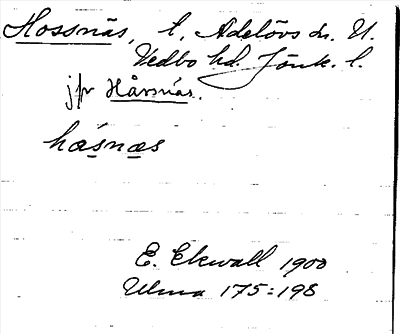 Hossnäs, t, Adelövs sn. N.
Vedbo hd. Jönk. l.
jfr Hårsnäs.
håsnæs
E. Ekwall 1900
Ulma 175:198